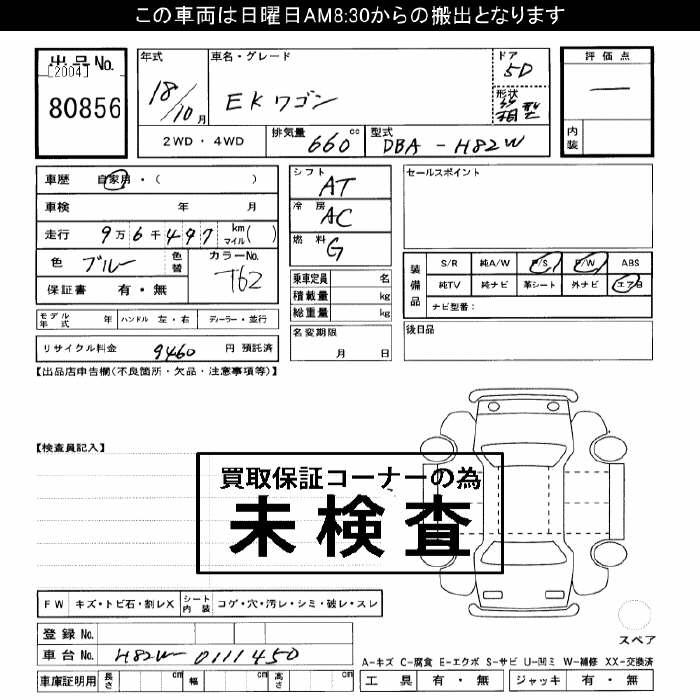 この車両は日曜日AM8:30からの搬出となります
出品No.
[2004]
80856
年式
18/10月
車名・グレード
EKワゴン
ドア
5D
形状
箱型
2WD・4WD
排気量
660cc
型式
DBA-H82W
評価点
―
内装
車歴 自家用・( )
車検 年 月
走行 9万6千497 km マイル( )
色 ブルー 色替
カラーNo.
T62
保証書 有・無
モデル年式 年 ハンドル 左・右 ディーラー・並行
リサイクル料金 9460 円 預託済
シフト
AT
冷房
AC
燃料
G
乗車定員 名
積載量 kg
総重量 kg
名変期限
月 日
セールスポイント
装備品
S/R 純A/W P/S P/W ABS
純TV 純ナビ 革シート 外ナビ エアB
ナビ型番:
後日品
【出品店申告欄(不良箇所・欠品・注意事項等)】
【検査員記入】
買取保証コーナーの為
未検査
FW キズ・トビ石・割レX シート内装 コゲ・穴・汚レ・シミ・破レ・スレ
登録No.
車台No. H82W-0111450
車庫証明用 長さ cm 幅 cm 高さ cm
スペア
A-キズ C-腐食 E-エクボ S-サビ U-凹ミ W-補修 XX-交換済
工具 有・無 ジャッキ 有・無